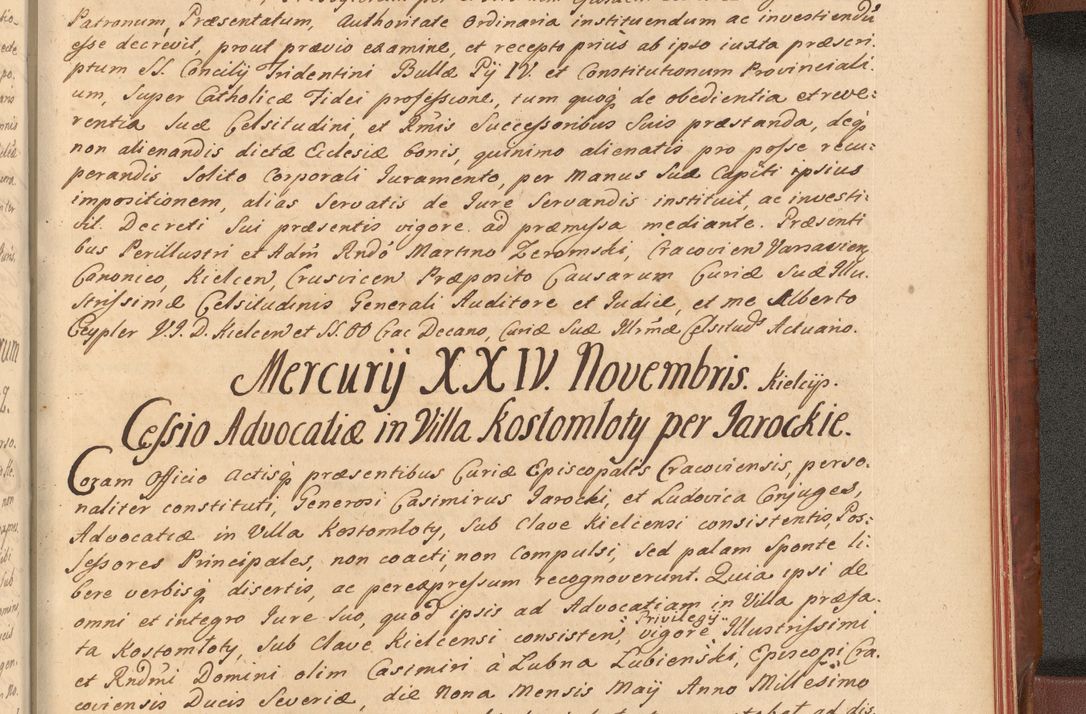 Patronum, Præsentatum, Authoritate Ordinaria instituendum ac investiendũ
esse decrevit, prout prævio examine, et recepto prius ab ipso iuxta præscri:
ptum SS. Concilij Tridentini Bullæ Pij IV. et Constitutionum Provinciali:
um, super Catholicæ Fidei professione, tum quoq de obedientia et reve:
rentia suæ Celsitudini, et Rmis Successoribus suis præstanda, deq
non alienandis dictæ Ecclesiæ bonis, quinimo alienatis pro posse recu:
perandis solito Corporali Iuramento, per manus suæ Capiti ipsius
impositionem, alias servatis de Iure servandis instituit, ac investi:
vit. Decreti sui præsentis vigore ad præmissa mediante. Præsenti
bus Perillustri et Adm̃ Rndo Martino Zeromski, Cracovien Varsavien
Canonico, Kielcen, Crusvicen Præposito Causarum Curiæ Suæ Illu
strissimæ Celsitudinis Generali Auditore et Iudice, et me Alberto
Ceypler V.I.D. Kielcen et SS.OO Crac Decano, Curiæ Suæ Illrmæ Celsitud Actuario.
Mercurij XXIV. Novembris. Kielcijs.
Cessio Advocatiæ in Villa Kostomloty per Jarockie.
Coram Officio Actisq præsentibus Curiæ Episcopalis Cracoviensis, perso:
naliter constituti, Generosi Casimirus Jarocki, et Ludovica Conjuges,
Advocatiæ in Villa Kostomloty, sub Clave Kielcensi consistentis Pos:
sessores Principales, non coacti, non compulsi, sed palam sponte li:
bere verbisq disertis, ac per expressum recognoverunt. Quia ipsi de
omni et integro Iure suo, quod ipsis ad Advocatiam in Villa præfa:
ta Kostomloty, sub Clave Kielcensi consisten, Privilegij vigore Illustrissimi
et Rndmi Domini olim Casimiri à Lubna Lubienski, Episcopi Cra:
coviensis Ducis Severiæ, die Nona Mensis Maij Anno Millesimo